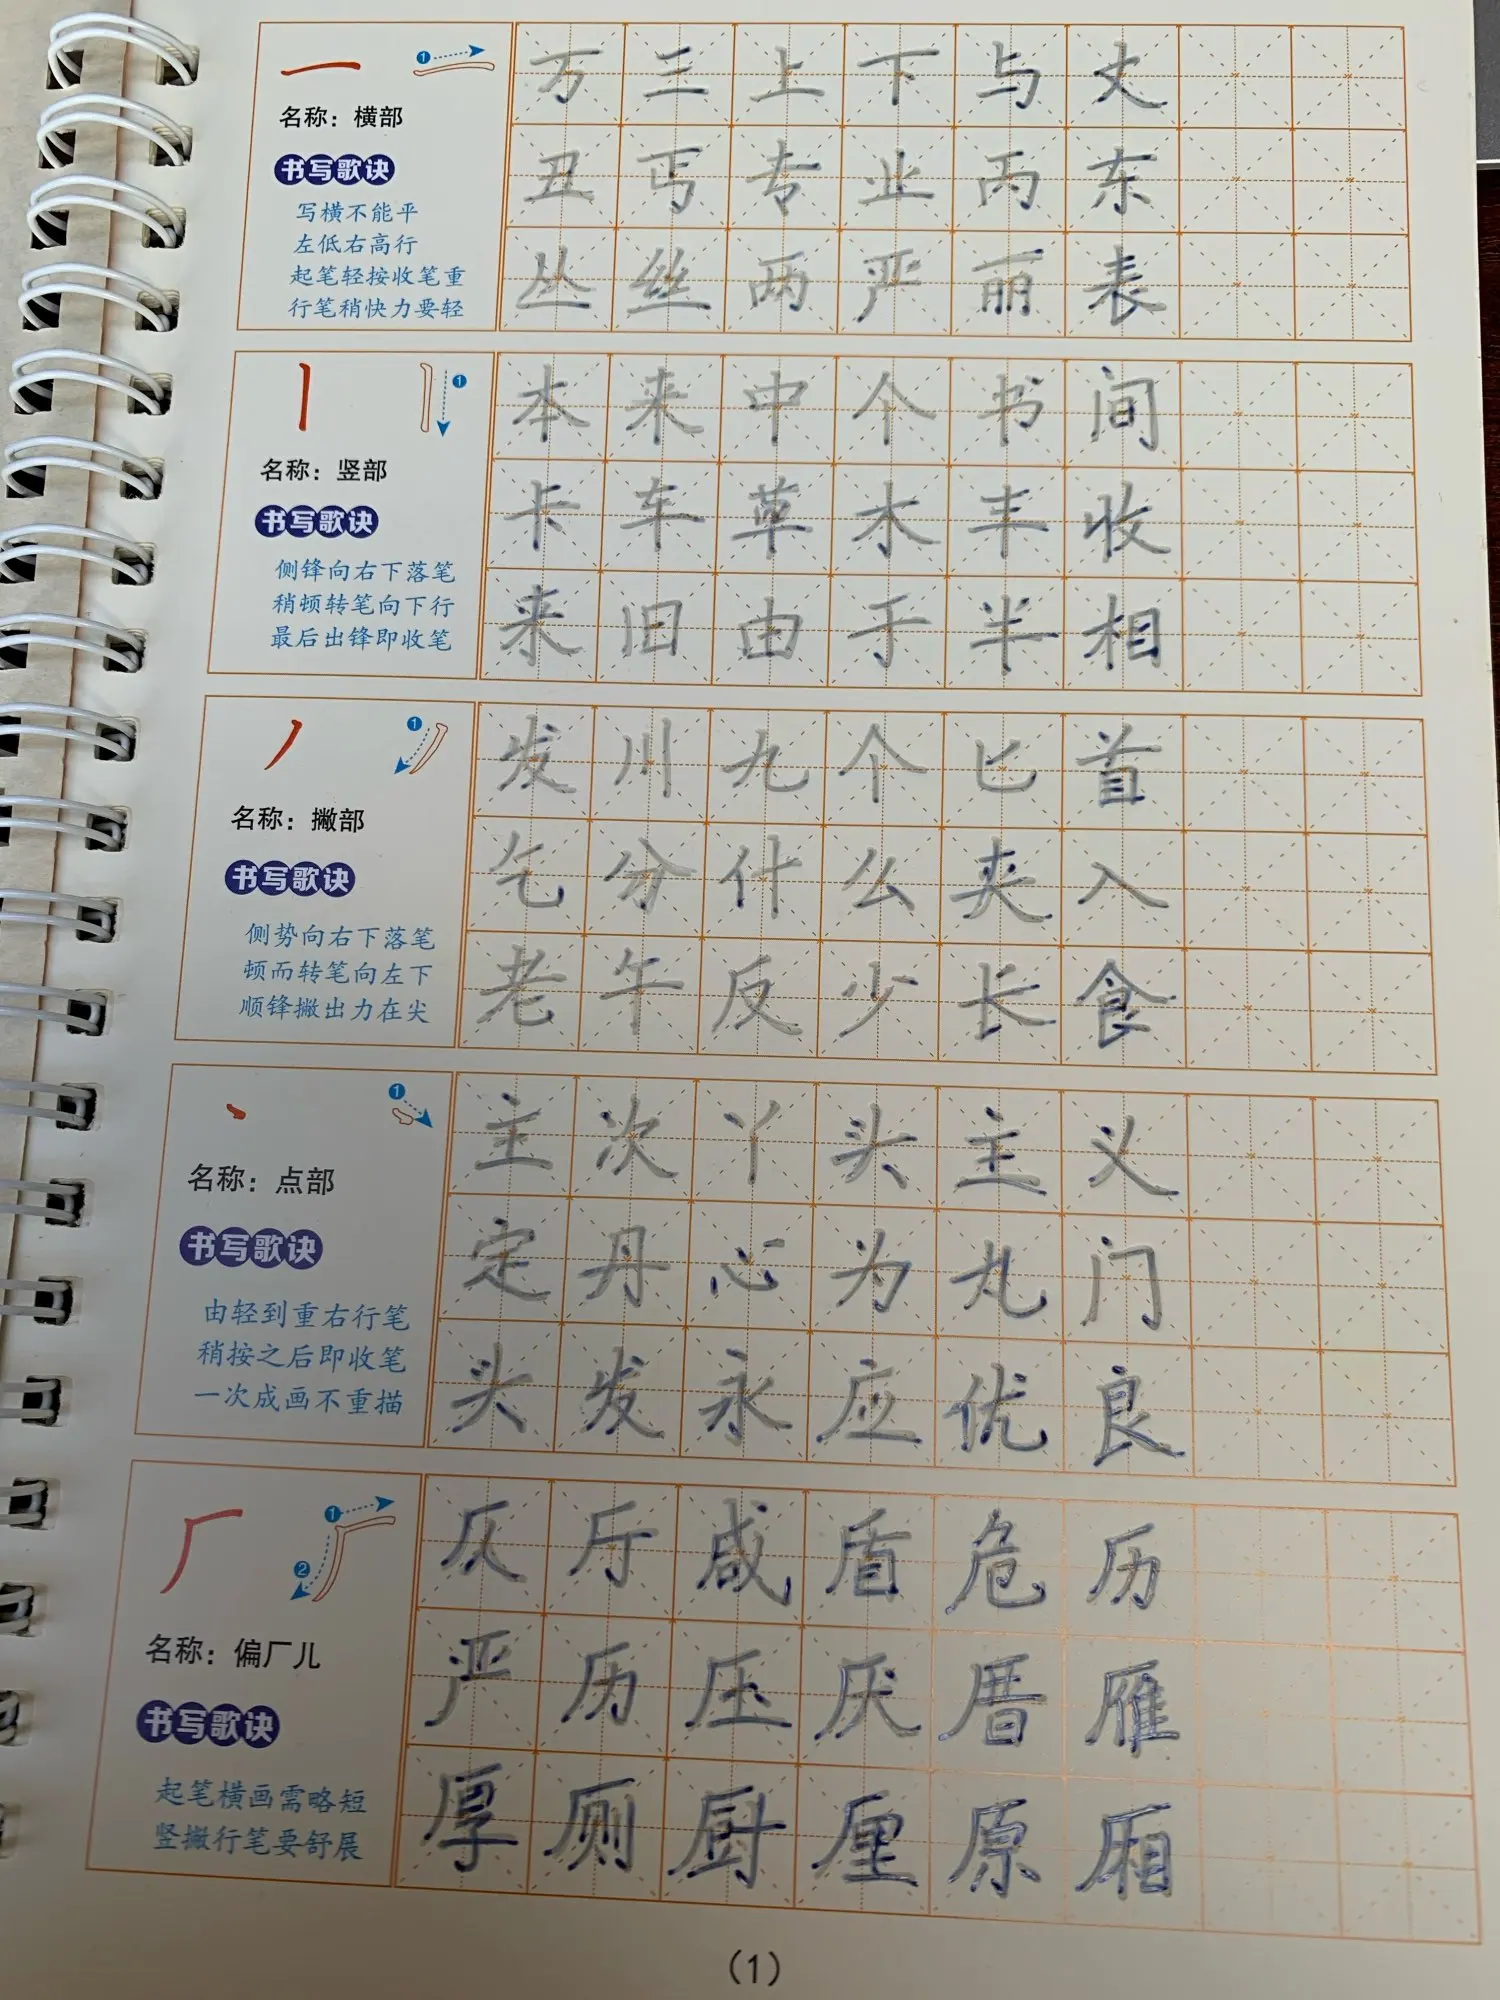 名称：横部
书写歌诀
写横不能平
左低右高行
起笔轻按收笔重
行笔稍快力要轻
万三上下与丈
丑丐专业丙东
丛丝两严丽表
名称：竖部
书写歌诀
侧锋向右下落笔
稍顿转笔向下行
最后出锋即收笔
本来中个书间
卡车草木丰收
来旧由于半相
名称：撇部
书写歌诀
侧势向右下落笔
顿而转笔向左下
顺锋撇出力在尖
发川九个匕首
乞分什么夹入
老午反少长食
名称：点部
书写歌诀
由轻到重右行笔
稍按之后即收笔
一次成画不重描
主次丫头主义
定丹心为丸门
头发永应优良
名称：偏厂儿
书写歌诀
起笔横画需略短
竖撇行笔要舒展
仄斤咸盾危历
严历压厌厝雁
厚厕厨厘原厢
(1)